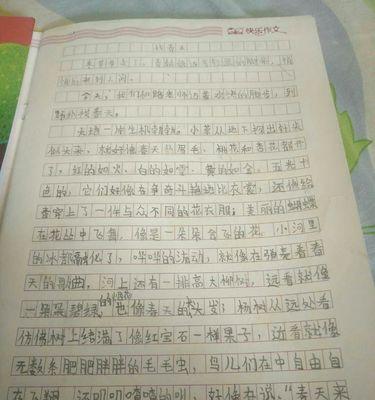 快乐作文
找春天
今天,我们和踏着 的脚步,到
野外找春天。
大地一片生机勃勃。小草从地下探出
头来,就好像春天的眉毛,桃花和杏花都开
了,红的如火,白的如雪,黄的如金,五光十
色的,它们好像在争奇斗艳地比衣裳,还像给
春穿上了一件与众不同的花衣服;美丽的蝴蝶
在花丛中飞舞,像是一朵朵会飞的花,小河里
的冰都融化了,哗哗的流动,就像在弹奏着春
天的歌曲。河上还有一排高大柳树,远看就像
一朵朵碧绿的烟花,也像春天的头发;杨树从远处看
仿佛树上结满了像红宝石一样果子,近看就像
无数条肥肥胖胖的毛毛虫,鸟儿们在中自由自
在飞翔,还叽叽喳喳的叫,好像在说:“春天来